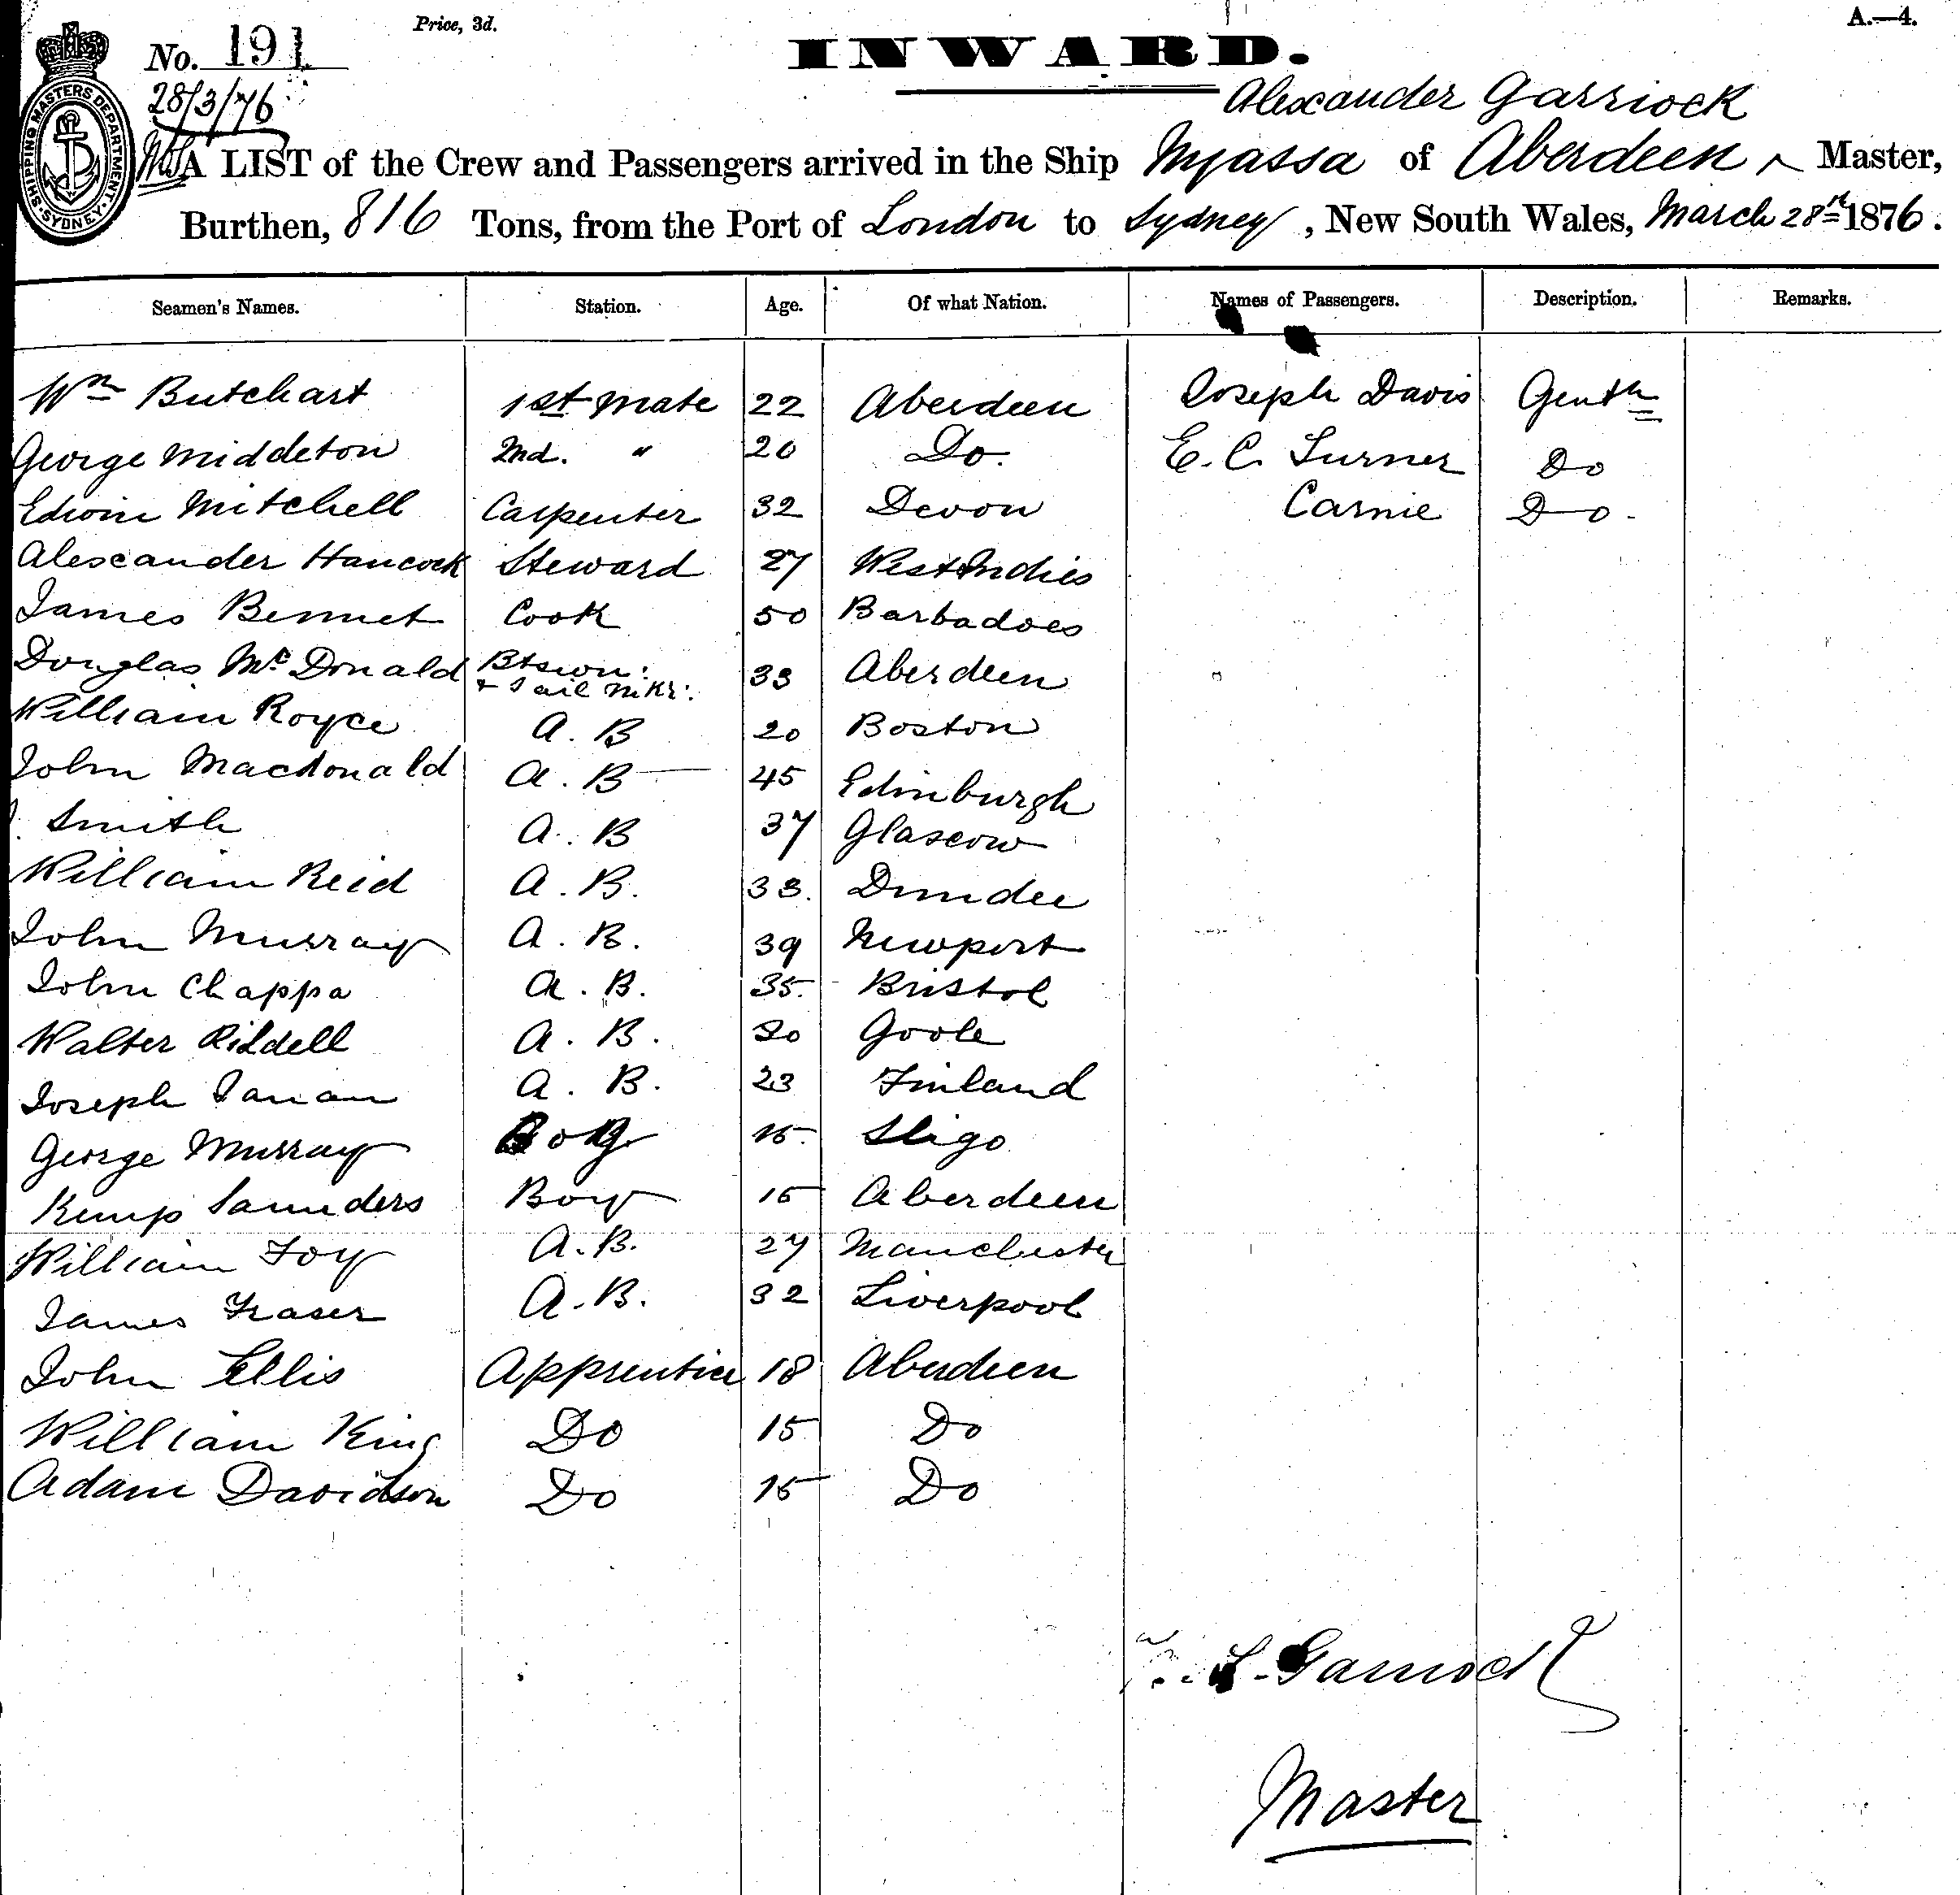 Price, 3d.
A.—4.
No. 191
INWARD.
28/3/76
Alexander Garriock
SHIPPING MASTERS DEPARTMENT · SYDNEY ·
A LIST of the Crew and Passengers arrived in the Ship Nyassa of Aberdeen, Master,
Burthen, 816 Tons, from the Port of London to Sydney, New South Wales, March 28th 1876.
Seamen's Names. Station. Age. Of what Nation. Names of Passengers. Description. Remarks.
Wm Butchart 1st Mate 22 Aberdeen Joseph Davis Gentn
George Middleton 2nd. " 20 Do. E. C. Turner Do
Edwin Mitchell Carpenter 32 Devon Carnie Do.
Alexander Hancock Steward 27 West Indies
James Bennet Cook 50 Barbadoes
Douglas McDonald Btswn: + Sail Mkr: 33 Aberdeen
William Royce A. B 20 Boston
John Macdonald A. B 45 Edinburgh
Smith A. B 37 Glascow
William Reid A. B. 33. Dundee
John Murray A. B. 39 Newport
John Chappa A. B. 35. Bristol
Walter Riddell A. B. 20 Goole
Joseph A. B. 23 Finland
George Murray Boy 15. Sligo
Kemp Saunders Boy 15 Aberdeen
William Foy A.B. 27 Manchester
James Fraser A.B. 32 Liverpool
John Ellis Apprentice 18 Aberdeen
William King Do 15 Do
Adam Davidson Do 15 Do
Garriock
Master